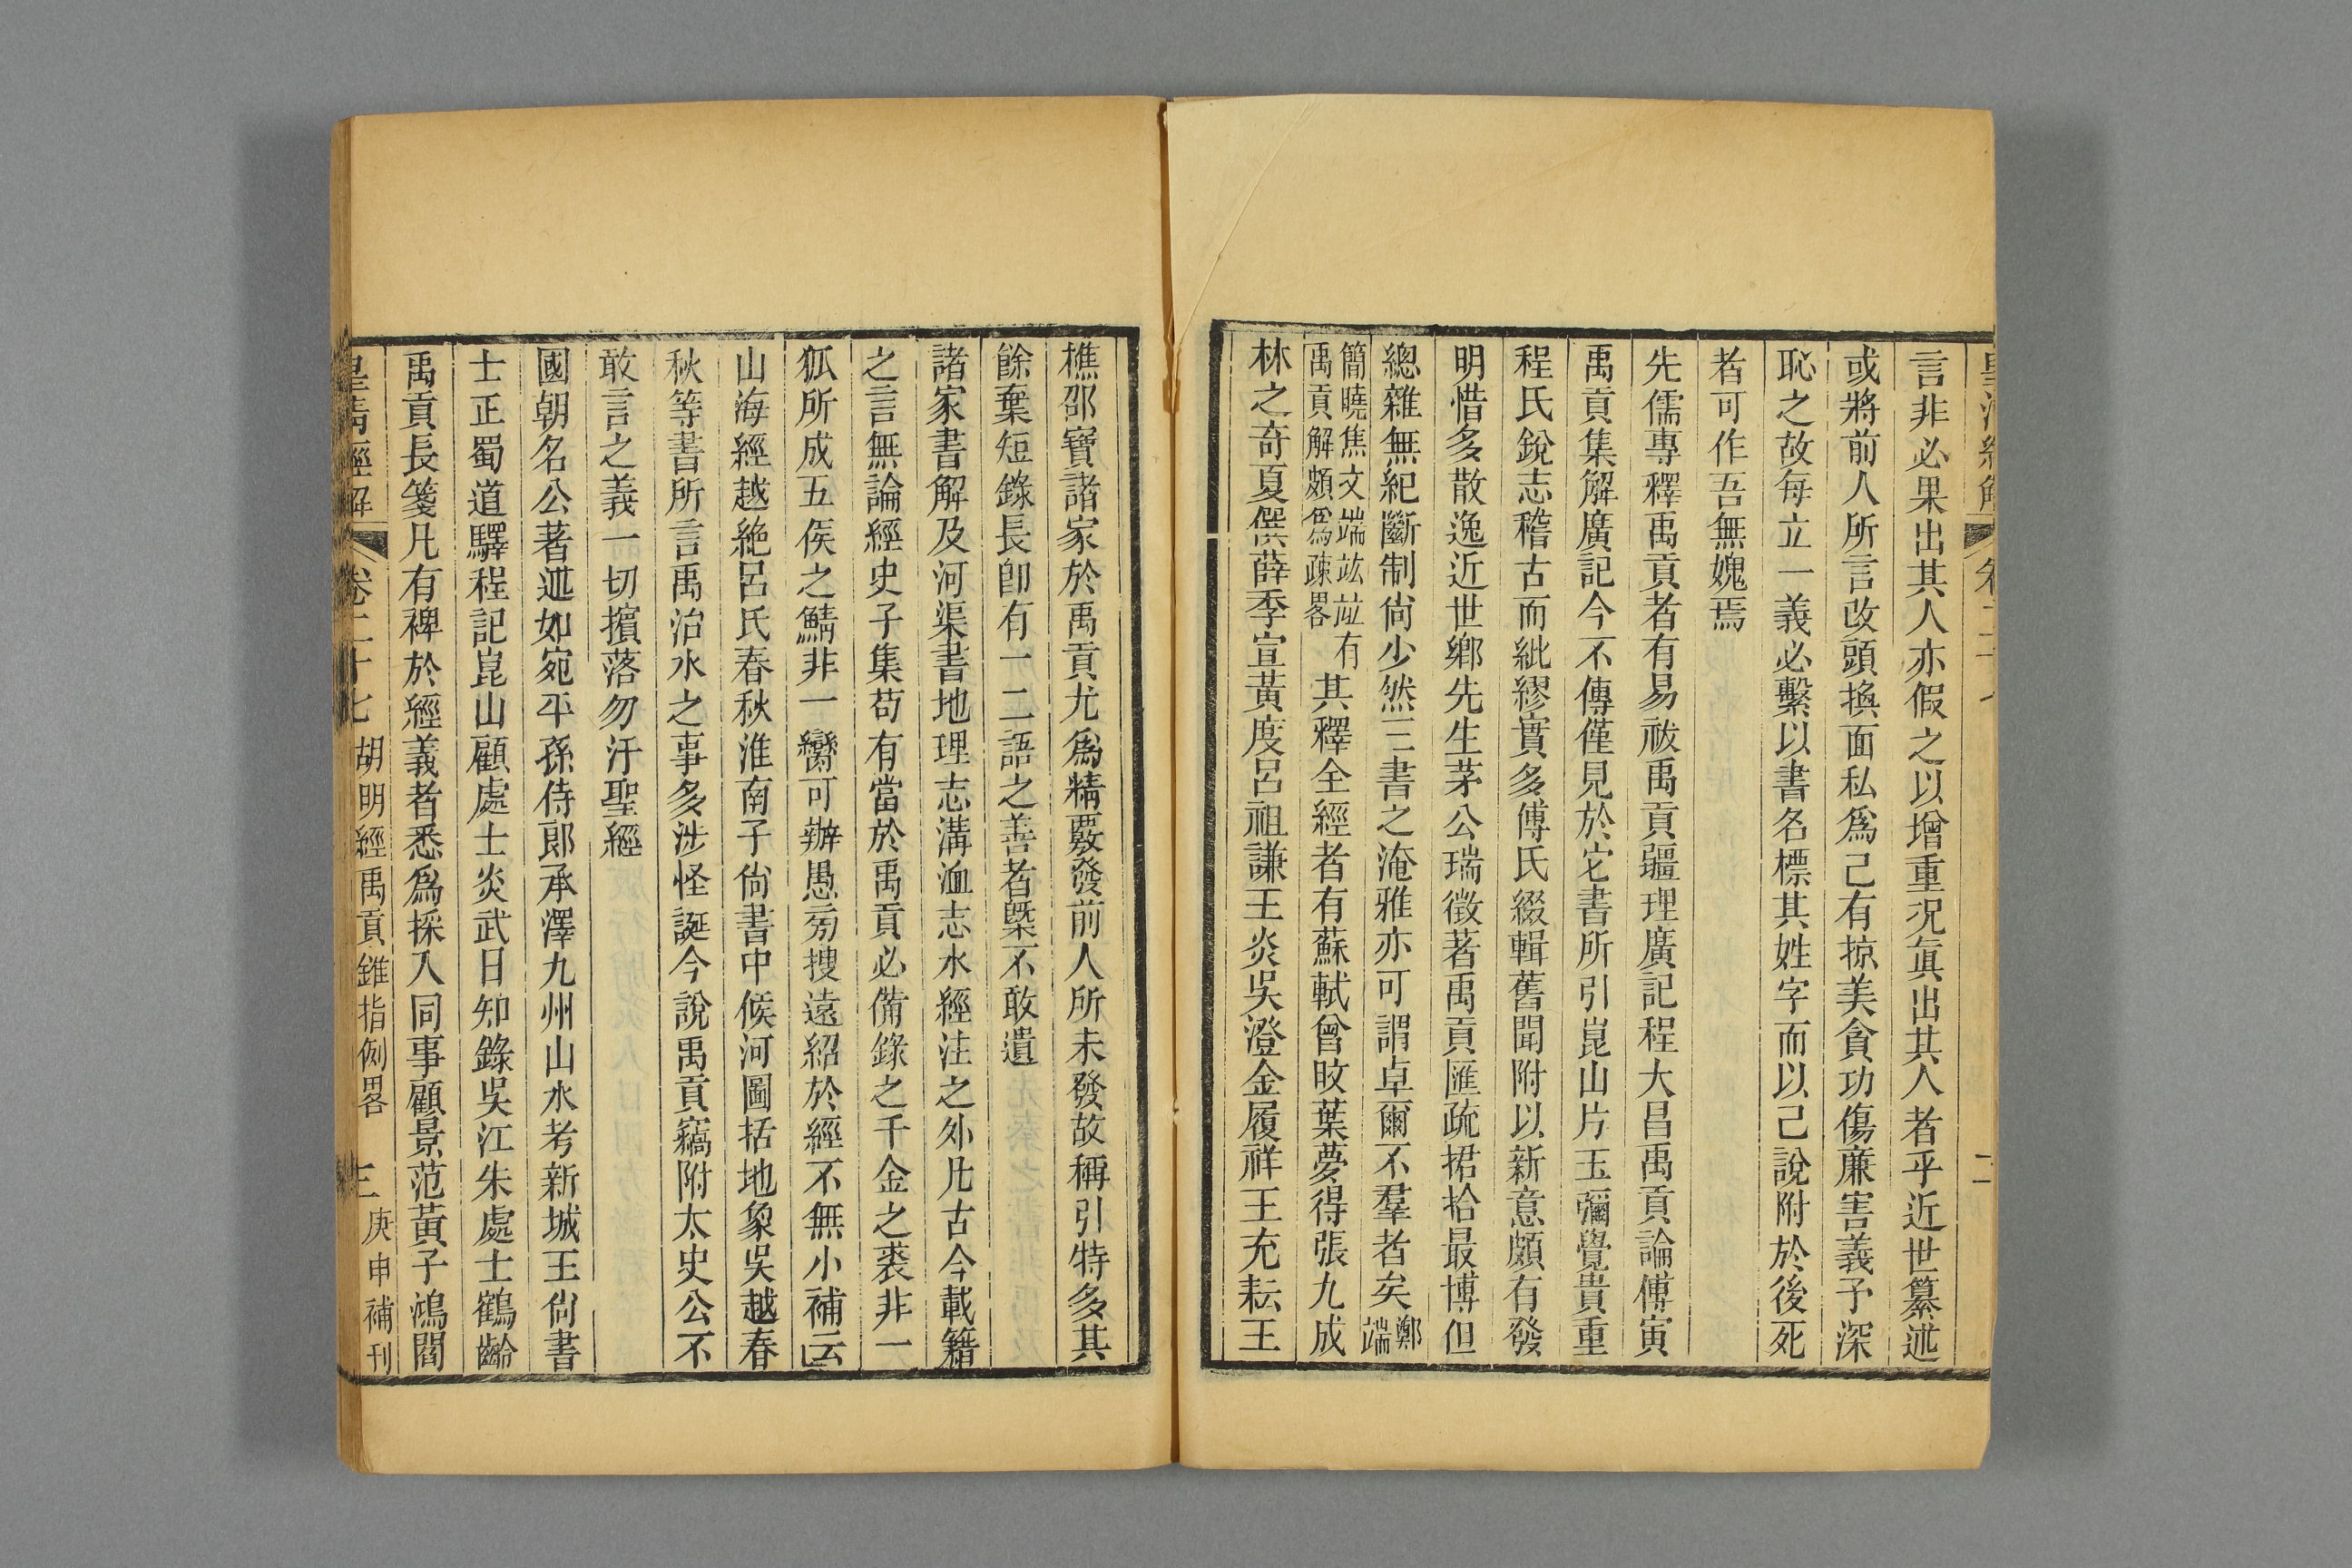 皇清經解 卷二十七 二
言非必果出其人亦假之以增重況眞出其人者乎近世纂述
或將前人所言改頭換面私爲己有掠美貪功傷廉害義予深
恥之故每立一義必繫以書名標其姓字而以己說附於後死
者可作吾無媿焉
先儒專釋禹貢者有易祓禹貢疆理廣記程大昌禹貢論傅寅
禹貢集解廣記今不傳僅見於它書所引崑山片玉彌覺貴重
程氏銳志稽古而紕繆實多傅氏綴輯舊聞附以新意頗有發
明惜多散逸近世鄉先生茅公瑞徵著禹貢匯疏捃拾最博但
總雜無紀斷制尙少然三書之淹雅亦可謂卓爾不羣者矣鄭端
簡曉焦文端竑竝有
禹貢解頗爲疎畧
其釋全經者有蘇軾曾旼葉夢得張九成
林之奇夏僎薛季宣黃度呂祖謙王炎吳澄金履祥王充耘王
樵邵寶諸家於禹貢尤爲精覈發前人所未發故稱引特多其
餘棄短錄長卽有一二語之善者槩不敢遺
諸家書解及河渠書地理志溝洫志水經注之外凡古今載籍
之言無論經史子集苟有當於禹貢必備錄之千金之裘非一
狐所成五侯之鯖非一臠可辦愚㫄搜遠紹於經不無小補云
山海經越絶呂氏春秋淮南子尙書中候河圖括地象吳越春
秋等書所言禹治水之事多涉怪誕今說禹貢竊附太史公不
敢言之義一切擯落勿汙聖經
國朝名公著述如宛平孫侍郎承澤九州山水考新城王尙書
士正蜀道驛程記崑山顧處士炎武日知錄吳江朱處士鶴齡
禹貢長箋凡有裨於經義者悉爲採入同事顧景范黃子鴻閻
皇清經解 卷二十七 胡明經禹貢錐指例畧 三 庚申補刊